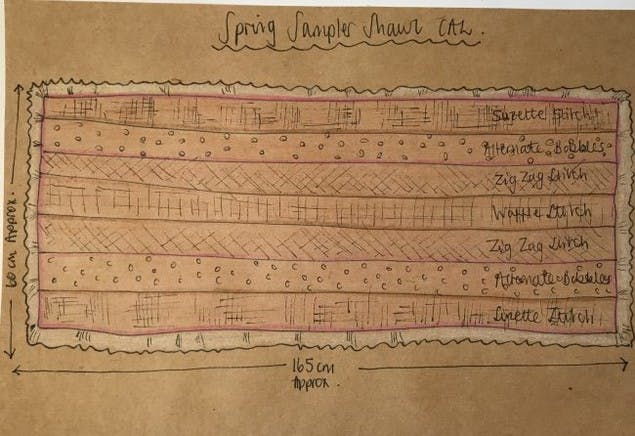 Spring Sampler Shawl CAL.
Suzette Stitch
Alternate Bobbles
Zig Zag Stitch
Waffle Stitch
Zig Zag Stitch
Alternate Bobbles
Suzette Stitch
60cm Approx.
165cm
Approx.